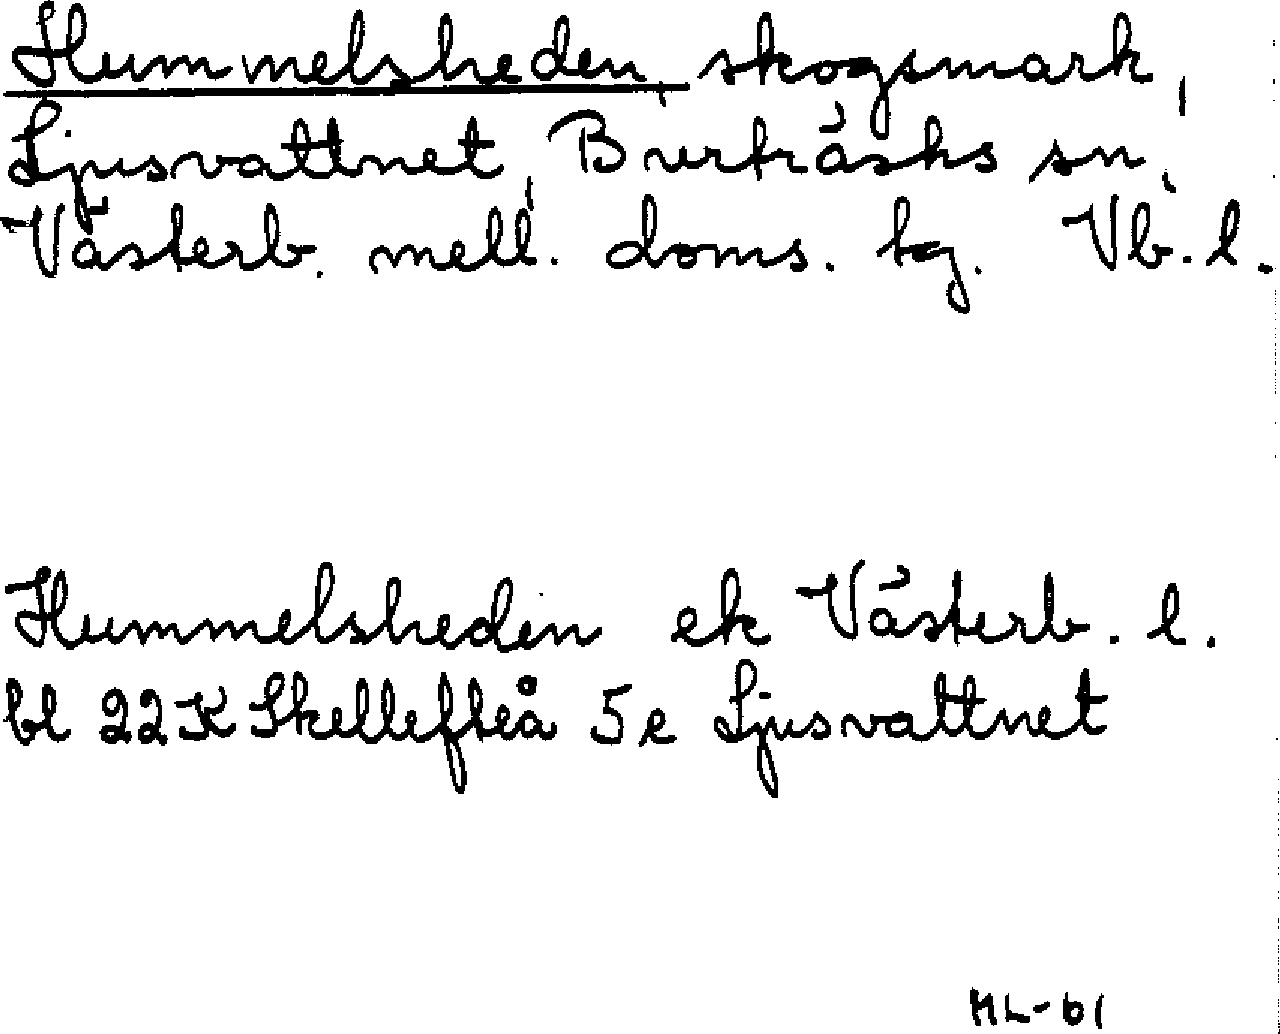 Hummelsheden, skogsmark,
Ljusvattnet, Burträsks sn,
Västerb. mell. doms. tg. Vb. l.
Hummelsheden ek Västerb. l.
bl 22K Skellefteå 5e Ljusvattnet
ML-61